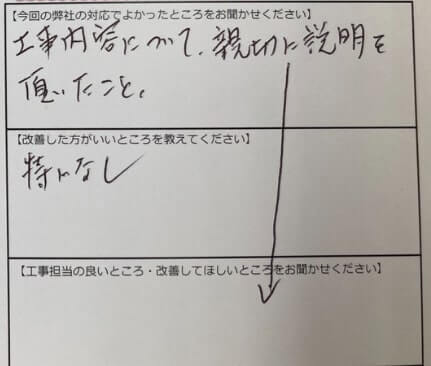 【今回の弊社の対応でよかったところをお聞かせください】
工事内容について、親切に説明を
頂いたこと。
【改善した方がいいところを教えてください】
特になし
【工事担当の良いところ・改善してほしいところをお聞かせください】